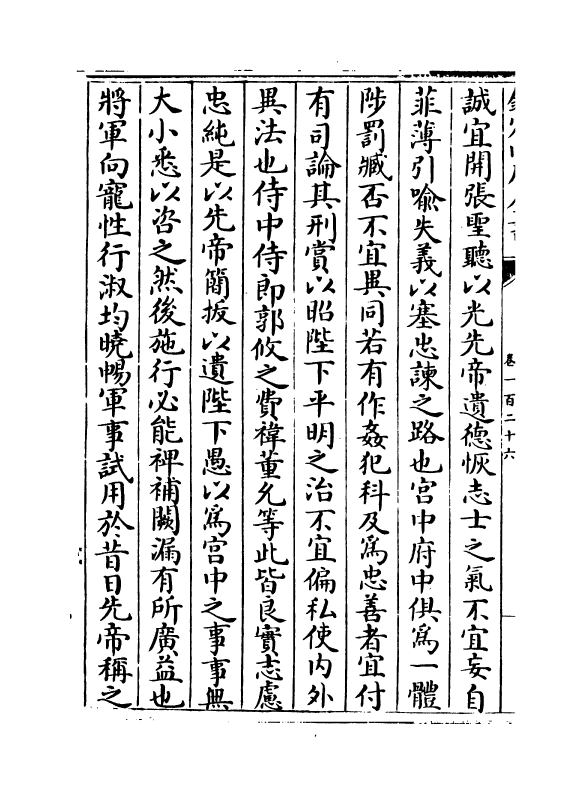 誠宜開張聖聽以光先帝遺德恢志士之氣不宜妄自
菲薄引喻失義以塞忠諫之路也宫中府中俱爲一體
陟罰臧否不宜異同若有作姦犯科及爲忠善者宜付
有司論其刑賞以昭陛下平明之治不宜偏私使内外
異法也侍中侍郎郭攸之費禕董允等此皆良實志慮
忠純是以先帝簡拔以遺陛下愚以爲宫中之事事無
大小悉以咨之然後施行必能裨補闕漏有所廣益也
將軍向寵性行淑均曉暢軍事試用於昔日先帝稱之
卷一百二十六